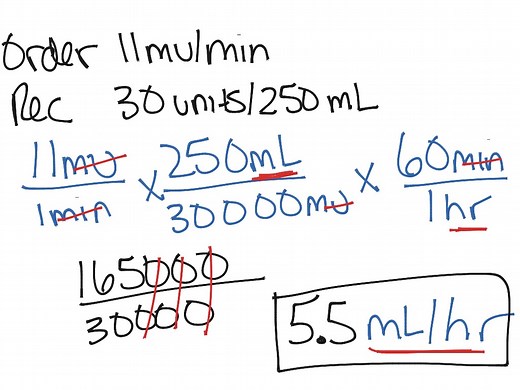 Order 11mu/min
Rec 30 units/250 mL
11mu/1min x 250mL/30000mu x 60min/1hr
165000/30000
5.5 mL/hr